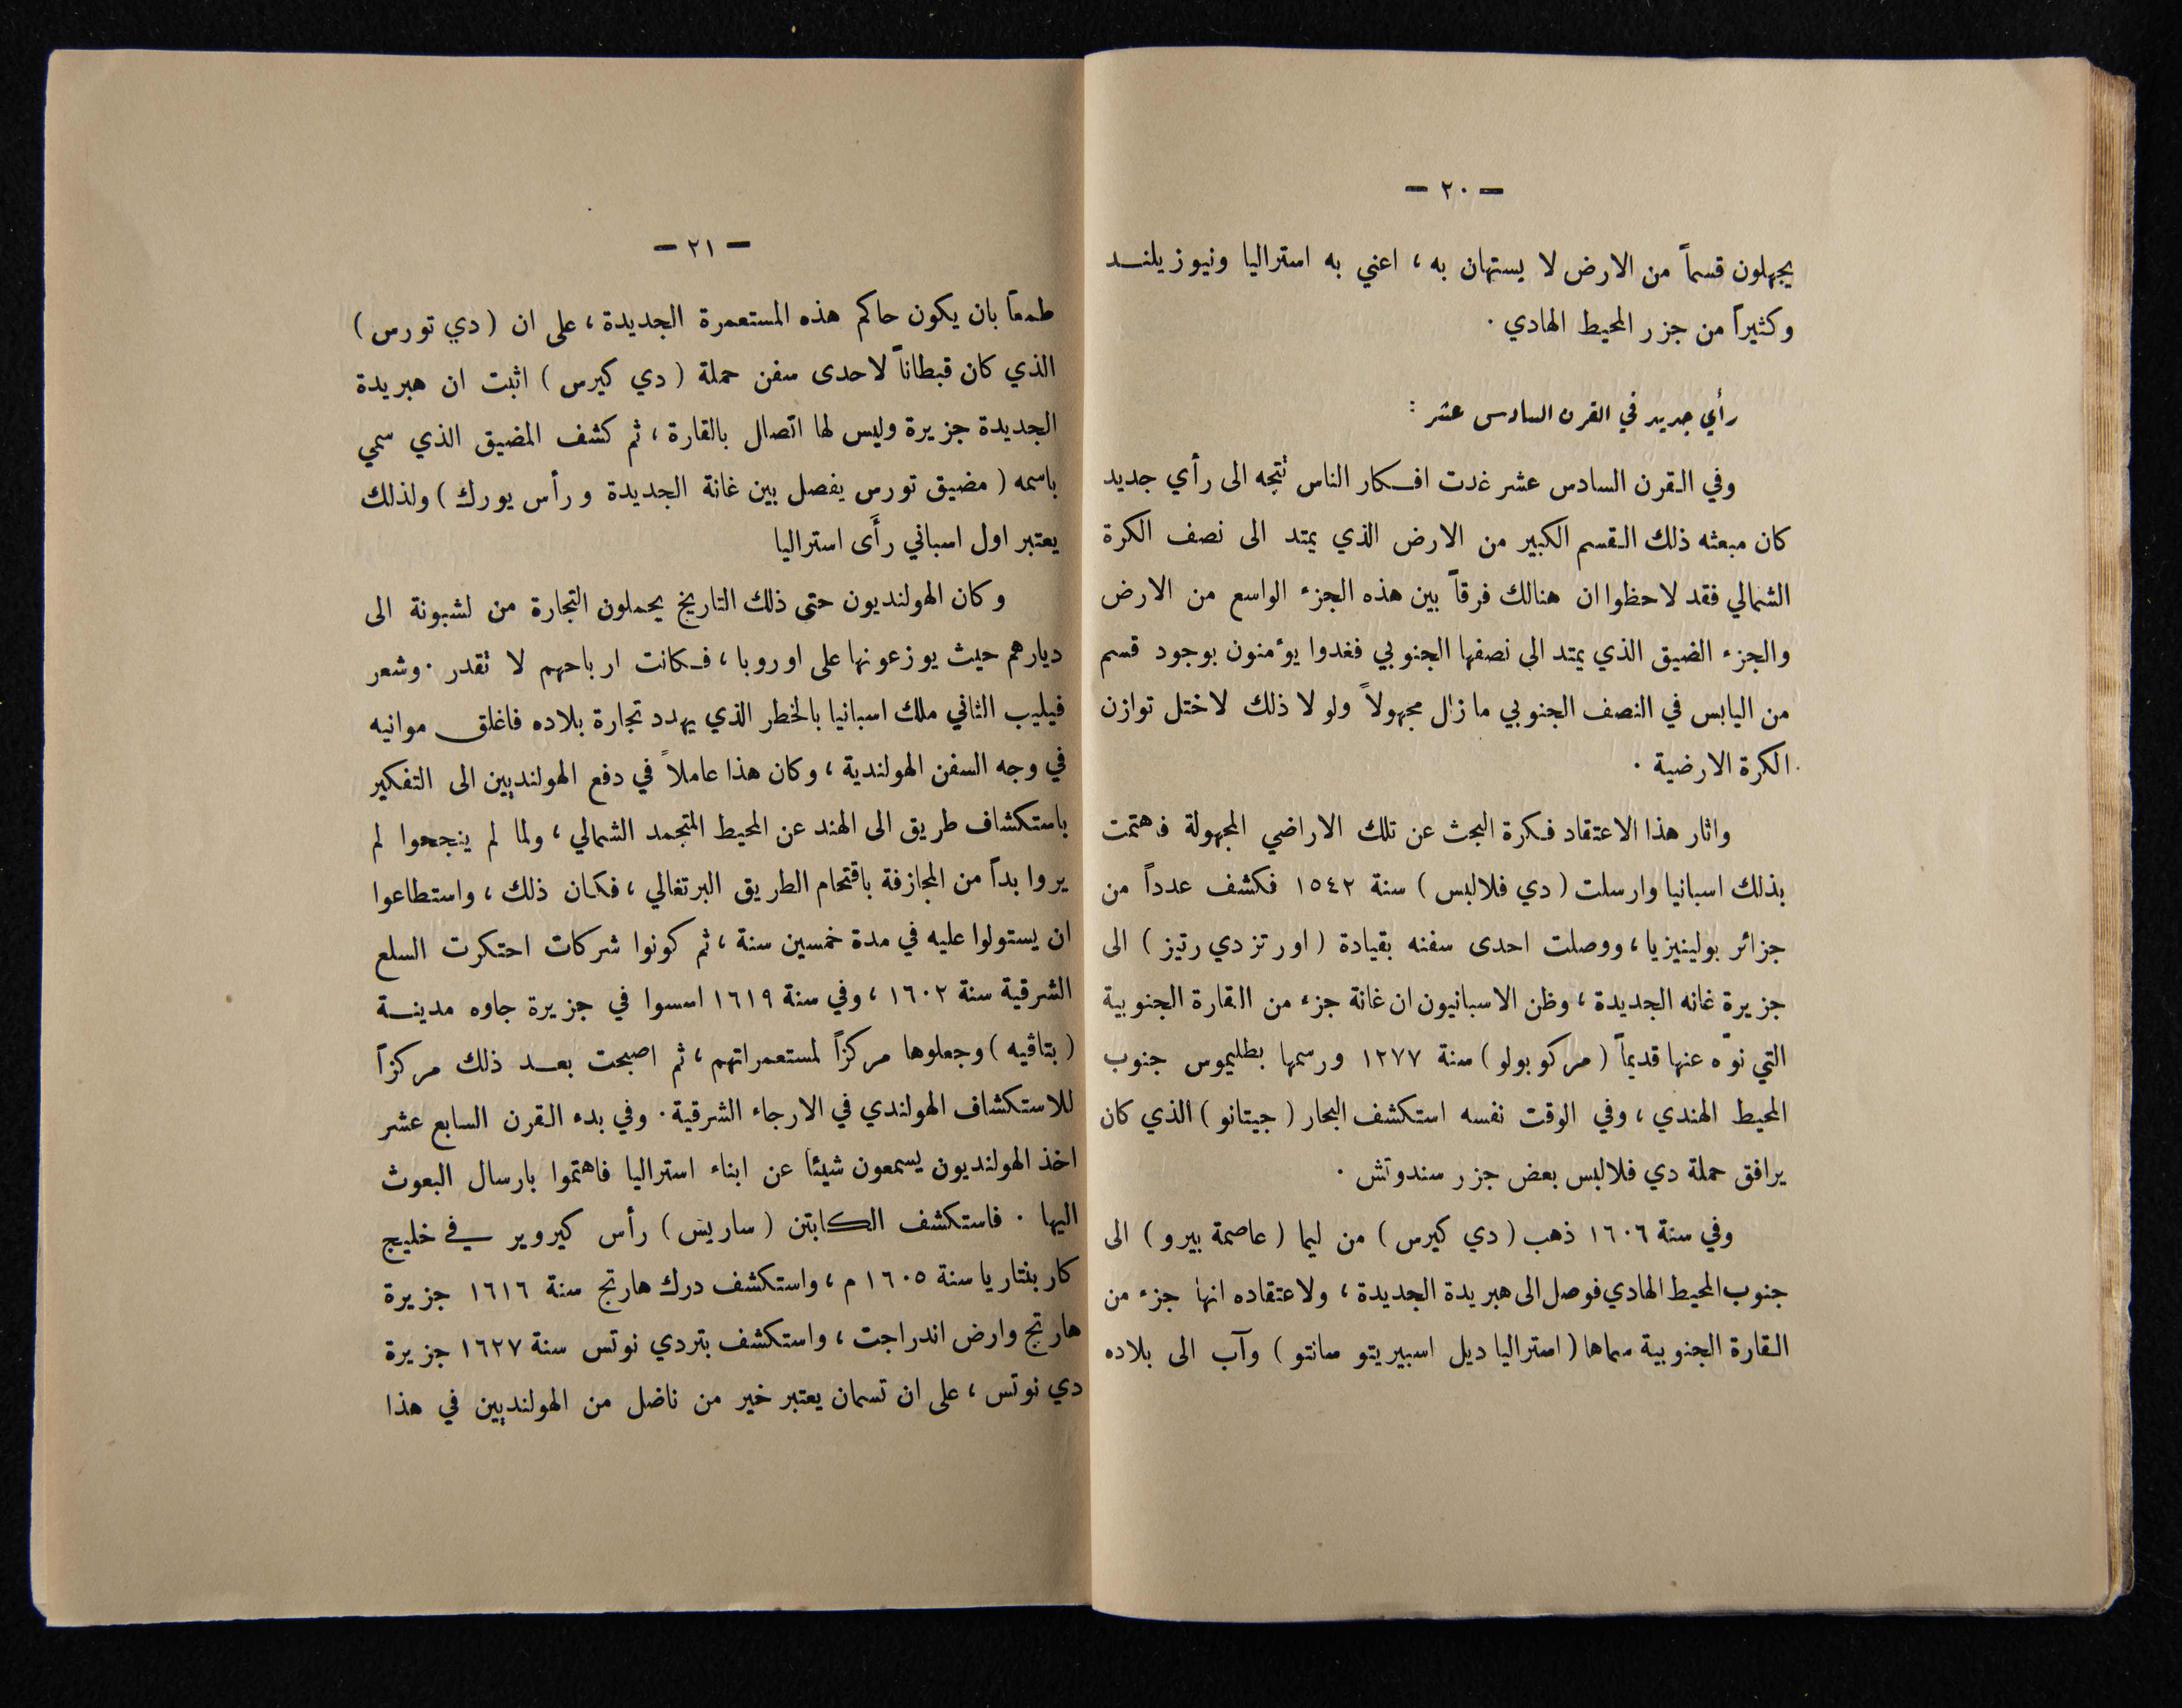 — ٢٠ —
يجهلون قسماً من الارض لا يستهان به ، اعني به استراليا ونيوزيلند
وكثيراً من جزر المحيط الهادي .
رأي جديد في القرن السادس عشر :
وفي القرن السادس عشر غدت افكار الناس تتجه الى رأي جديد
كان مبعثه ذلك القسم الكبير من الارض الذي يمتد الى نصف الكرة
الشمالي فقد لاحظوا ان هنالك فرقاً بين هذه الجزء الواسع من الارض
والجزء الضيق الذي يمتد الى نصفها الجنوبي فغدوا يؤمنون بوجود قسم
من اليابس في النصف الجنوبي ما زال مجهولاً ولو لا ذلك لاختل توازن
الكرة الارضية .
واثار هذا الاعتقاد فكرة البحث عن تلك الاراضي المجهولة فاهتمت
بذلك اسبانيا وارسلت ( دي فلالبس ) سنة ١٥٤٢ فكشف عدداً من
جزائر بولينيزيا ، ووصلت احدى سفنه بقيادة ( اورتز دي رتيز ) الى
جزيرة غانه الجديدة ، وظن الاسبانيون ان غانة جزء من القارة الجنوبية
التي نوّه عنها قديماً ( مركوبولو ) سنة ١٢٧٧ ورسمها بطليموس جنوب
المحيط الهندي ، وفي الوقت نفسه استكشف البحار ( جيتانو ) الذي كان
يرافق حملة دي فلالبس بعض جزر سندوتش .
وفي سنة ١٦٠٦ ذهب ( دي كيرس ) من ليما ( عاصمة بيرو ) الى
جنوب المحيط الهادي فوصل الى هبريدة الجديدة ، ولاعتقاده انها جزء من
القارة الجنوبية سماها ( استراليا ديل اسبيريتو سانتو ) وآب الى بلاده
— ٢١ —
طمعاً بان يكون حاكم هذه المستعمرة الجديدة ، على ان ( دي تورس )
الذي كان قبطاناً لاحدى سفن حملة ( دي كيرس ) اثبت ان هبريدة
الجديدة جزيرة وليس لها اتصال بالقارة ، ثم كشف المضيق الذي سمي
باسمه ( مضيق تورس يفصل بين غانة الجديدة ورأس يورك ) ولذلك
يعتبر اول اسباني رأَى استراليا
وكان الهولنديون حتى ذلك التاريخ يحملون التجارة من لشبونة الى
ديارهم حيث يوزعونها على اوروبا ، فكانت ارباحهم لا تقدر . وشعر
فيليب الثاني ملك اسبانيا بالخطر الذي يهدد تجارة بلاده فاغلق موانيه
في وجه السفن الهولندية ، وكان هذا عاملاً في دفع الهولنديين الى التفكير
باستكشاف طريق الى الهند عن المحيط المتجمد الشمالي ، ولما لم ينجحوا لم
يروا بداً من المجازفة باقتحام الطريق البرتغالي ، فكان ذلك ، واستطاعوا
ان يستولوا عليه في مدة خمسين سنة ، ثم كونوا شركات احتكرت السلع
الشرقية سنة ١٦٠٢ ، وفي سنة ١٦١٩ اسسوا في جزيرة جاوه مدينة
( بتاڤيه ) وجعلوها مركزاً لمستعمراتهم ، ثم اصبحت بعد ذلك مركزاً
للاستكشاف الهولندي في الارجاء الشرقية . وفي بدء القرن السابع عشر
اخذ الهولنديون يسمعون شيئا عن ابناء استراليا فاهتموا بارسال البعوث
اليها . فاستكشف الكابتن ( ساريس ) رأس كيروير في خليج
كاربنتاريا سنة ١٦٠٥ م ، واستكشف درك هارتج سنة ١٦١٦ جزيرة
هارتج وارض اندراجت ، واستكشف بتردي نوتس سنة ١٦٢٧ جزيرة
دي نوتس ، على ان تسمان يعتبر خير من ناضل من الهولنديين في هذا